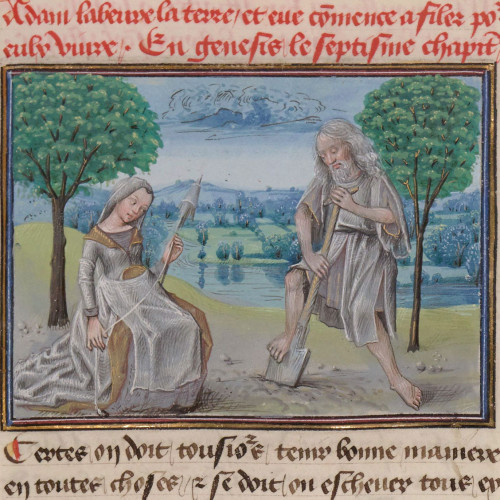 Adam labeure la terre / et eue cõmence a filer po
eulx viure . En genesis le septisme chapit
Certes on doit tousiors tenir bonne maniere
en toutes choses / & se doit on escheuer tous ex